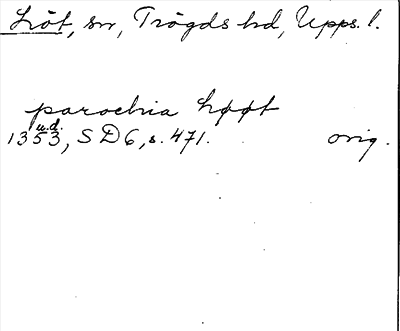 Löt, sn, Trögds hd, Upps. l.
parochia Løøt
u.d.
1353, SD 6, s. 471. orig.